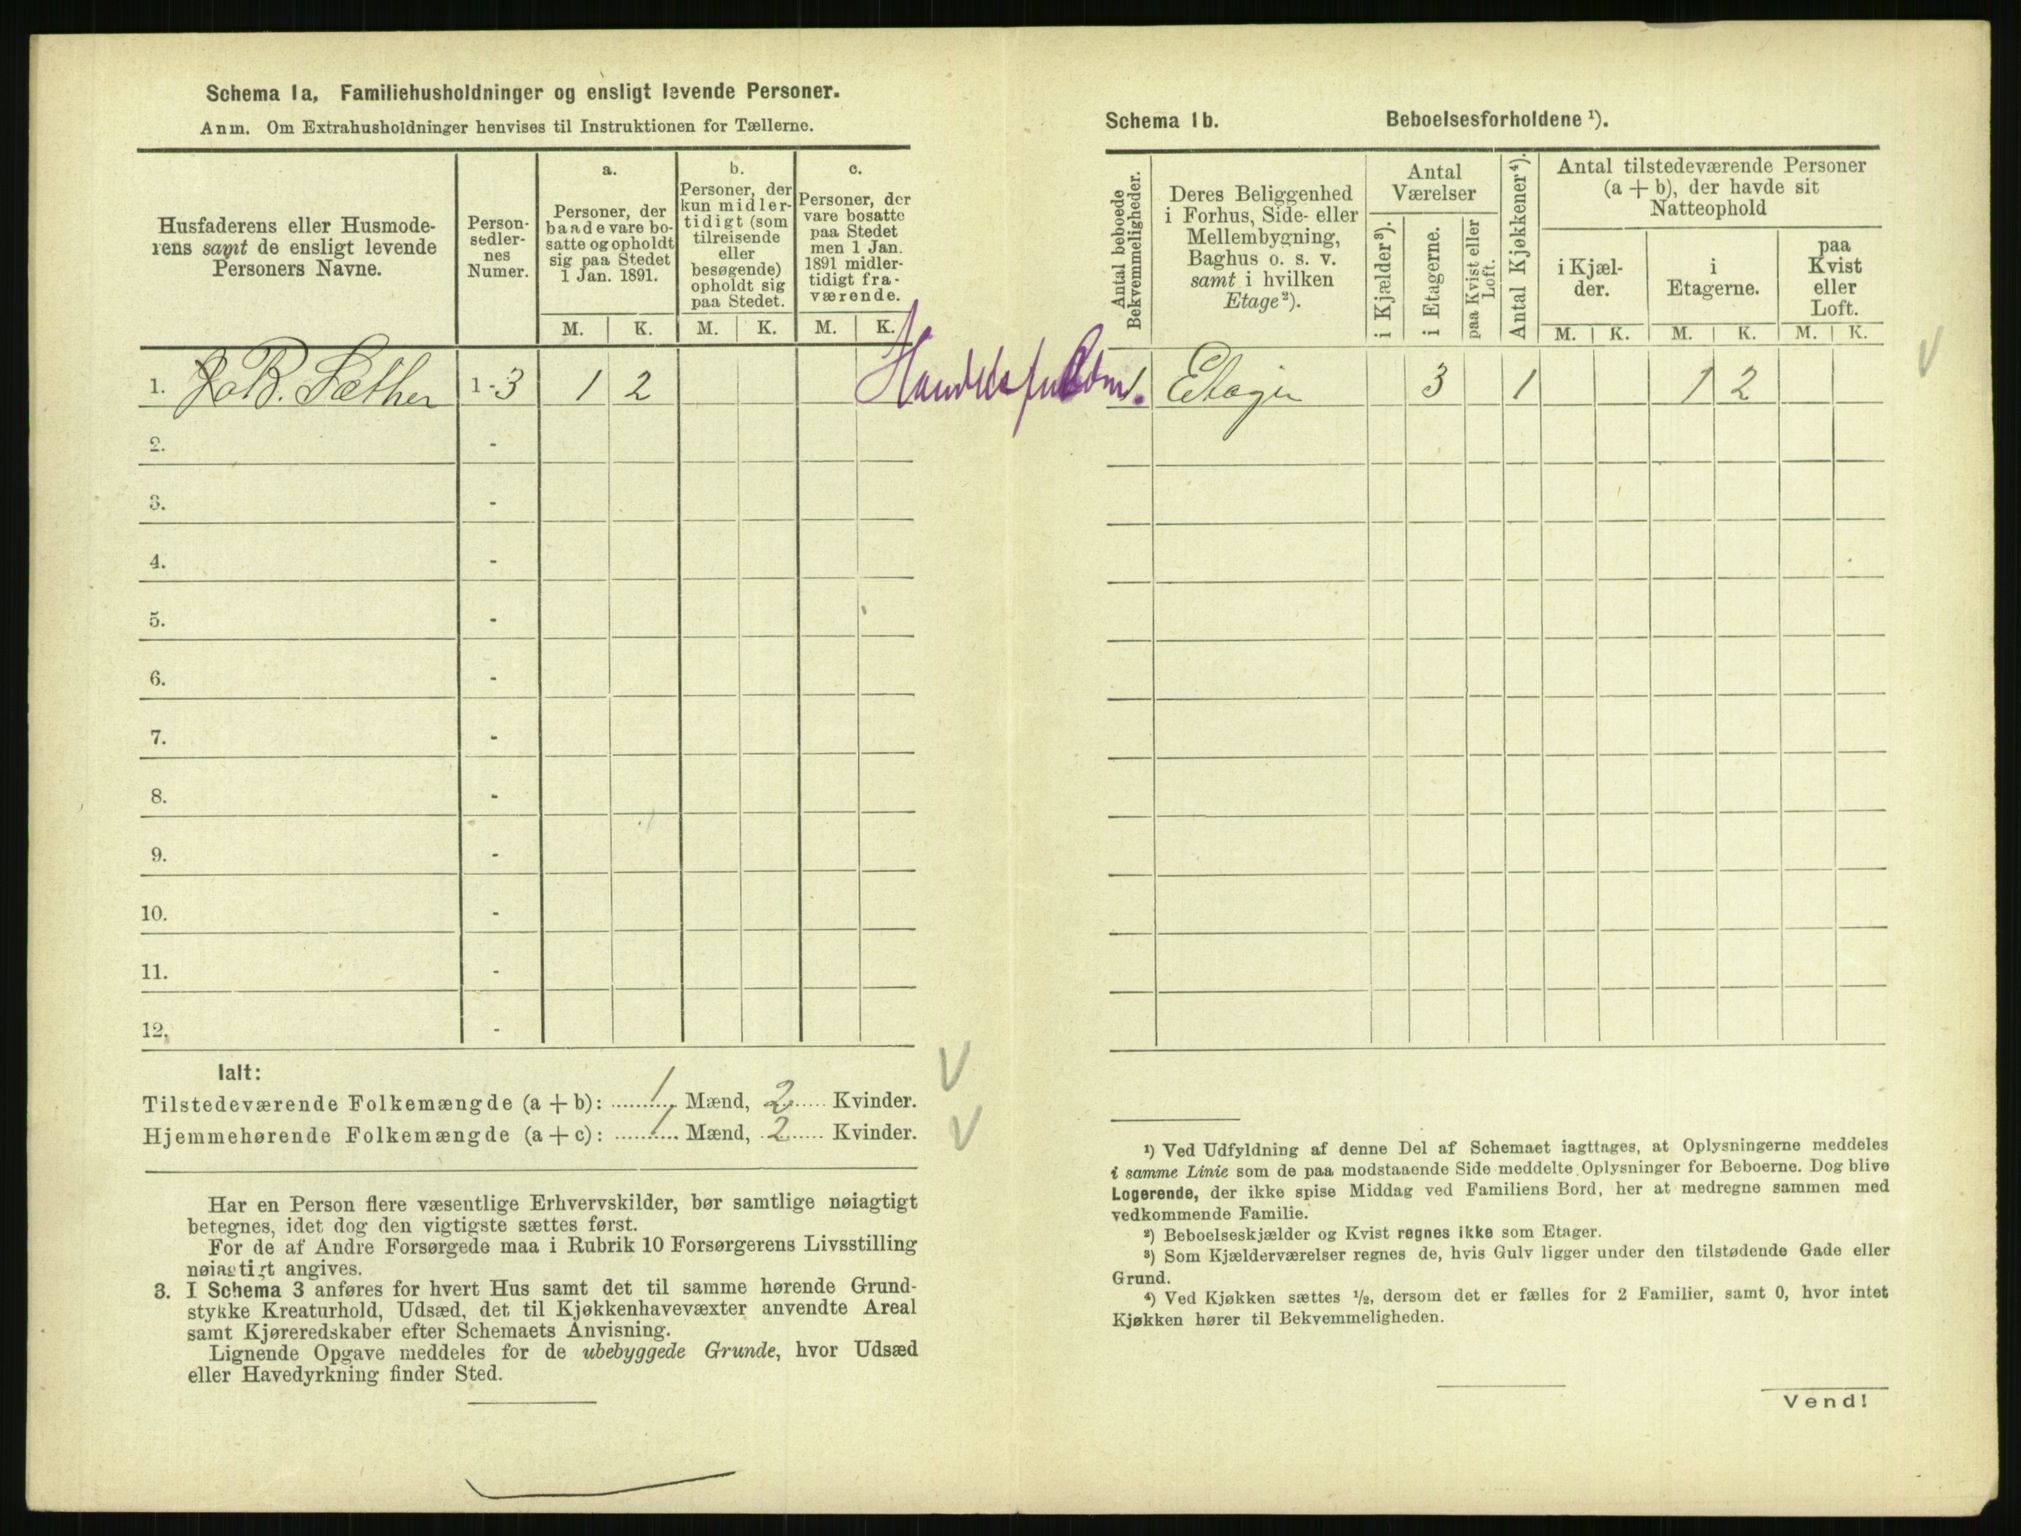 Schema 1a, Familiehusholdninger og ensligt levende Personer.
Anm. Om Extrahusholdninger henvises til Instruktionen for Tællerne.
Husfaderens eller Husmode-
rens samt de ensligt levende
Personers Navne.
Person-
sedler-
nes
Numer.
a.
Personer, der
baade vare bo-
satte og opholdt
sig paa Stedet
1 Jan. 1891.
b.
Personer, der
kun midler-
tidigt (som
tilreisende
eller
besøgende)
opholdt sig
paa Stedet.
c.
Personer, der
vare bosatte
paa Stedet
men 1 Jan.
1891 midler-
tidigt fra-
værende.
M. K. M. K. M. K.
1. B. Sæther 1 - 3 1 2
2. -
3. -
4. -
5. -
6. -
7. -
8. -
9. -
10. -
11. -
12. -
Ialt:
Tilstedeværende Folkemængde (a + b): 1 Mænd, 2 Kvinder.
Hjemmehørende Folkemængde (a + c): 1 Mænd, 2 Kvinder.
Har en Person flere væsentlige Erhvervskilder, bør samtlige nøiagtigt
betegnes, idet dog den vigtigste sættes først.
For de af Andre Forsørgede maa i Rubrik 10 Forsørgerens Livsstilling
nøiagtigt angives.
3. I Schema 3 anføres for hvert Hus samt det til samme hørende Grund-
stykke Kreaturhold, Udsæd, det til Kjøkkenhavevæxter anvendte Areal
samt Kjøreredskaber efter Schemaets Anvisning.
Lignende Opgave meddeles for de ubebyggede Grunde, hvor Udsæd
eller Havedyrkning finder Sted.
Schema 1b. Beboelsesforholdene ¹).
Antal beboede
Bekvemmeligheder.
Deres Beliggenhed
i Forhus, Side- eller
Mellembygning,
Baghus o. s. v.
samt i hvilken
Etage²).
Antal
Værelser
i Kjælder³).
i Etagerne.
paa Kvist eller
Loft.
Antal Kjøkkener⁴).
Antal tilstedeværende Personer
(a + b), der havde sit
Natteophold
i Kjæl-
der.
i
Etagerne.
paa
Kvist
eller
Loft.
M. K. M. K. M. K.
1. Etagen 3 1 1 2
¹) Ved Udfyldning af denne Del af Schemaet iagttages, at Oplysningerne meddeles
i samme Linie som de paa modstaaende Side meddelte Oplysninger for Beboerne. Dog blive
Logerende, der ikke spise Middag ved Familiens Bord, her at medregne sammen med
vedkommende Familie.
²) Beboelseskjælder og Kvist regnes ikke som Etager.
³) Som Kjælderværelser regnes de, hvis Gulv ligger under den tilstødende Gade eller
Grund.
⁴) Ved Kjøkken sættes ½, dersom det er fælles for 2 Familier, samt 0, hvor intet
Kjøkken hører til Bekvemmeligheden.
Vend!